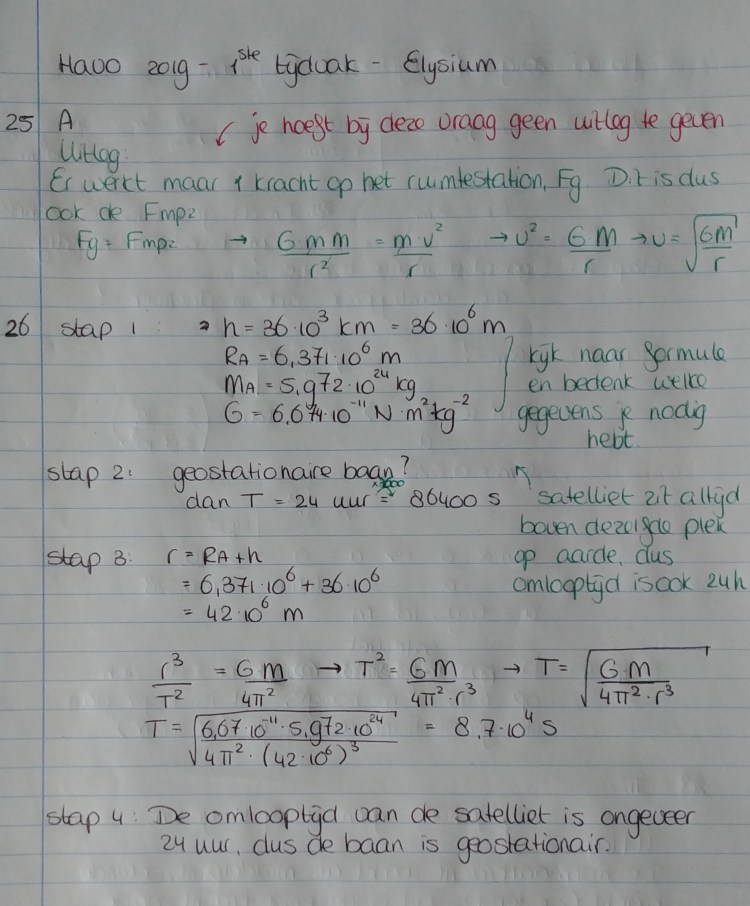 Havo 2019 - 1ste tijdvak - Elysium
25 A
↙ je hoeft bij deze vraag geen uitleg te geven
Uitleg:
Er werkt maar 1 kracht op het ruimtestation, Fg. Dit is dus
ook de Fmpz
Fg = Fmpz → G·m·M/r² = m v²/r → v² = G M/r → v = √(GM/r)
26 stap 1: h = 36·10³ km = 36·10⁶ m
RA = 6,371·10⁶ m
MA = 5,972·10²⁴ kg
G = 6,674·10⁻¹¹ N·m²kg⁻²
kijk naar formule
en bedenk welke
gegevens je nodig
hebt.
stap 2: geostationaire baan?
dan T = 24 uur = 86400 s
×3600
satelliet zit altijd
boven dezelfde plek
op aarde, dus
omlooptijd is ook 24h
stap 3: r = RA + h
= 6,371·10⁶ + 36·10⁶
= 42·10⁶ m
r³/T² = G M/4π² → T² = G M/4π²·r³ → T = √(G·M/4π²·r³)
T = √(6,67·10⁻¹¹·5,972·10²⁴/4π²·(42·10⁶)³) = 8,7·10⁴ s
stap 4: De omlooptijd van de satelliet is ongeveer
24 uur, dus de baan is geostationair.